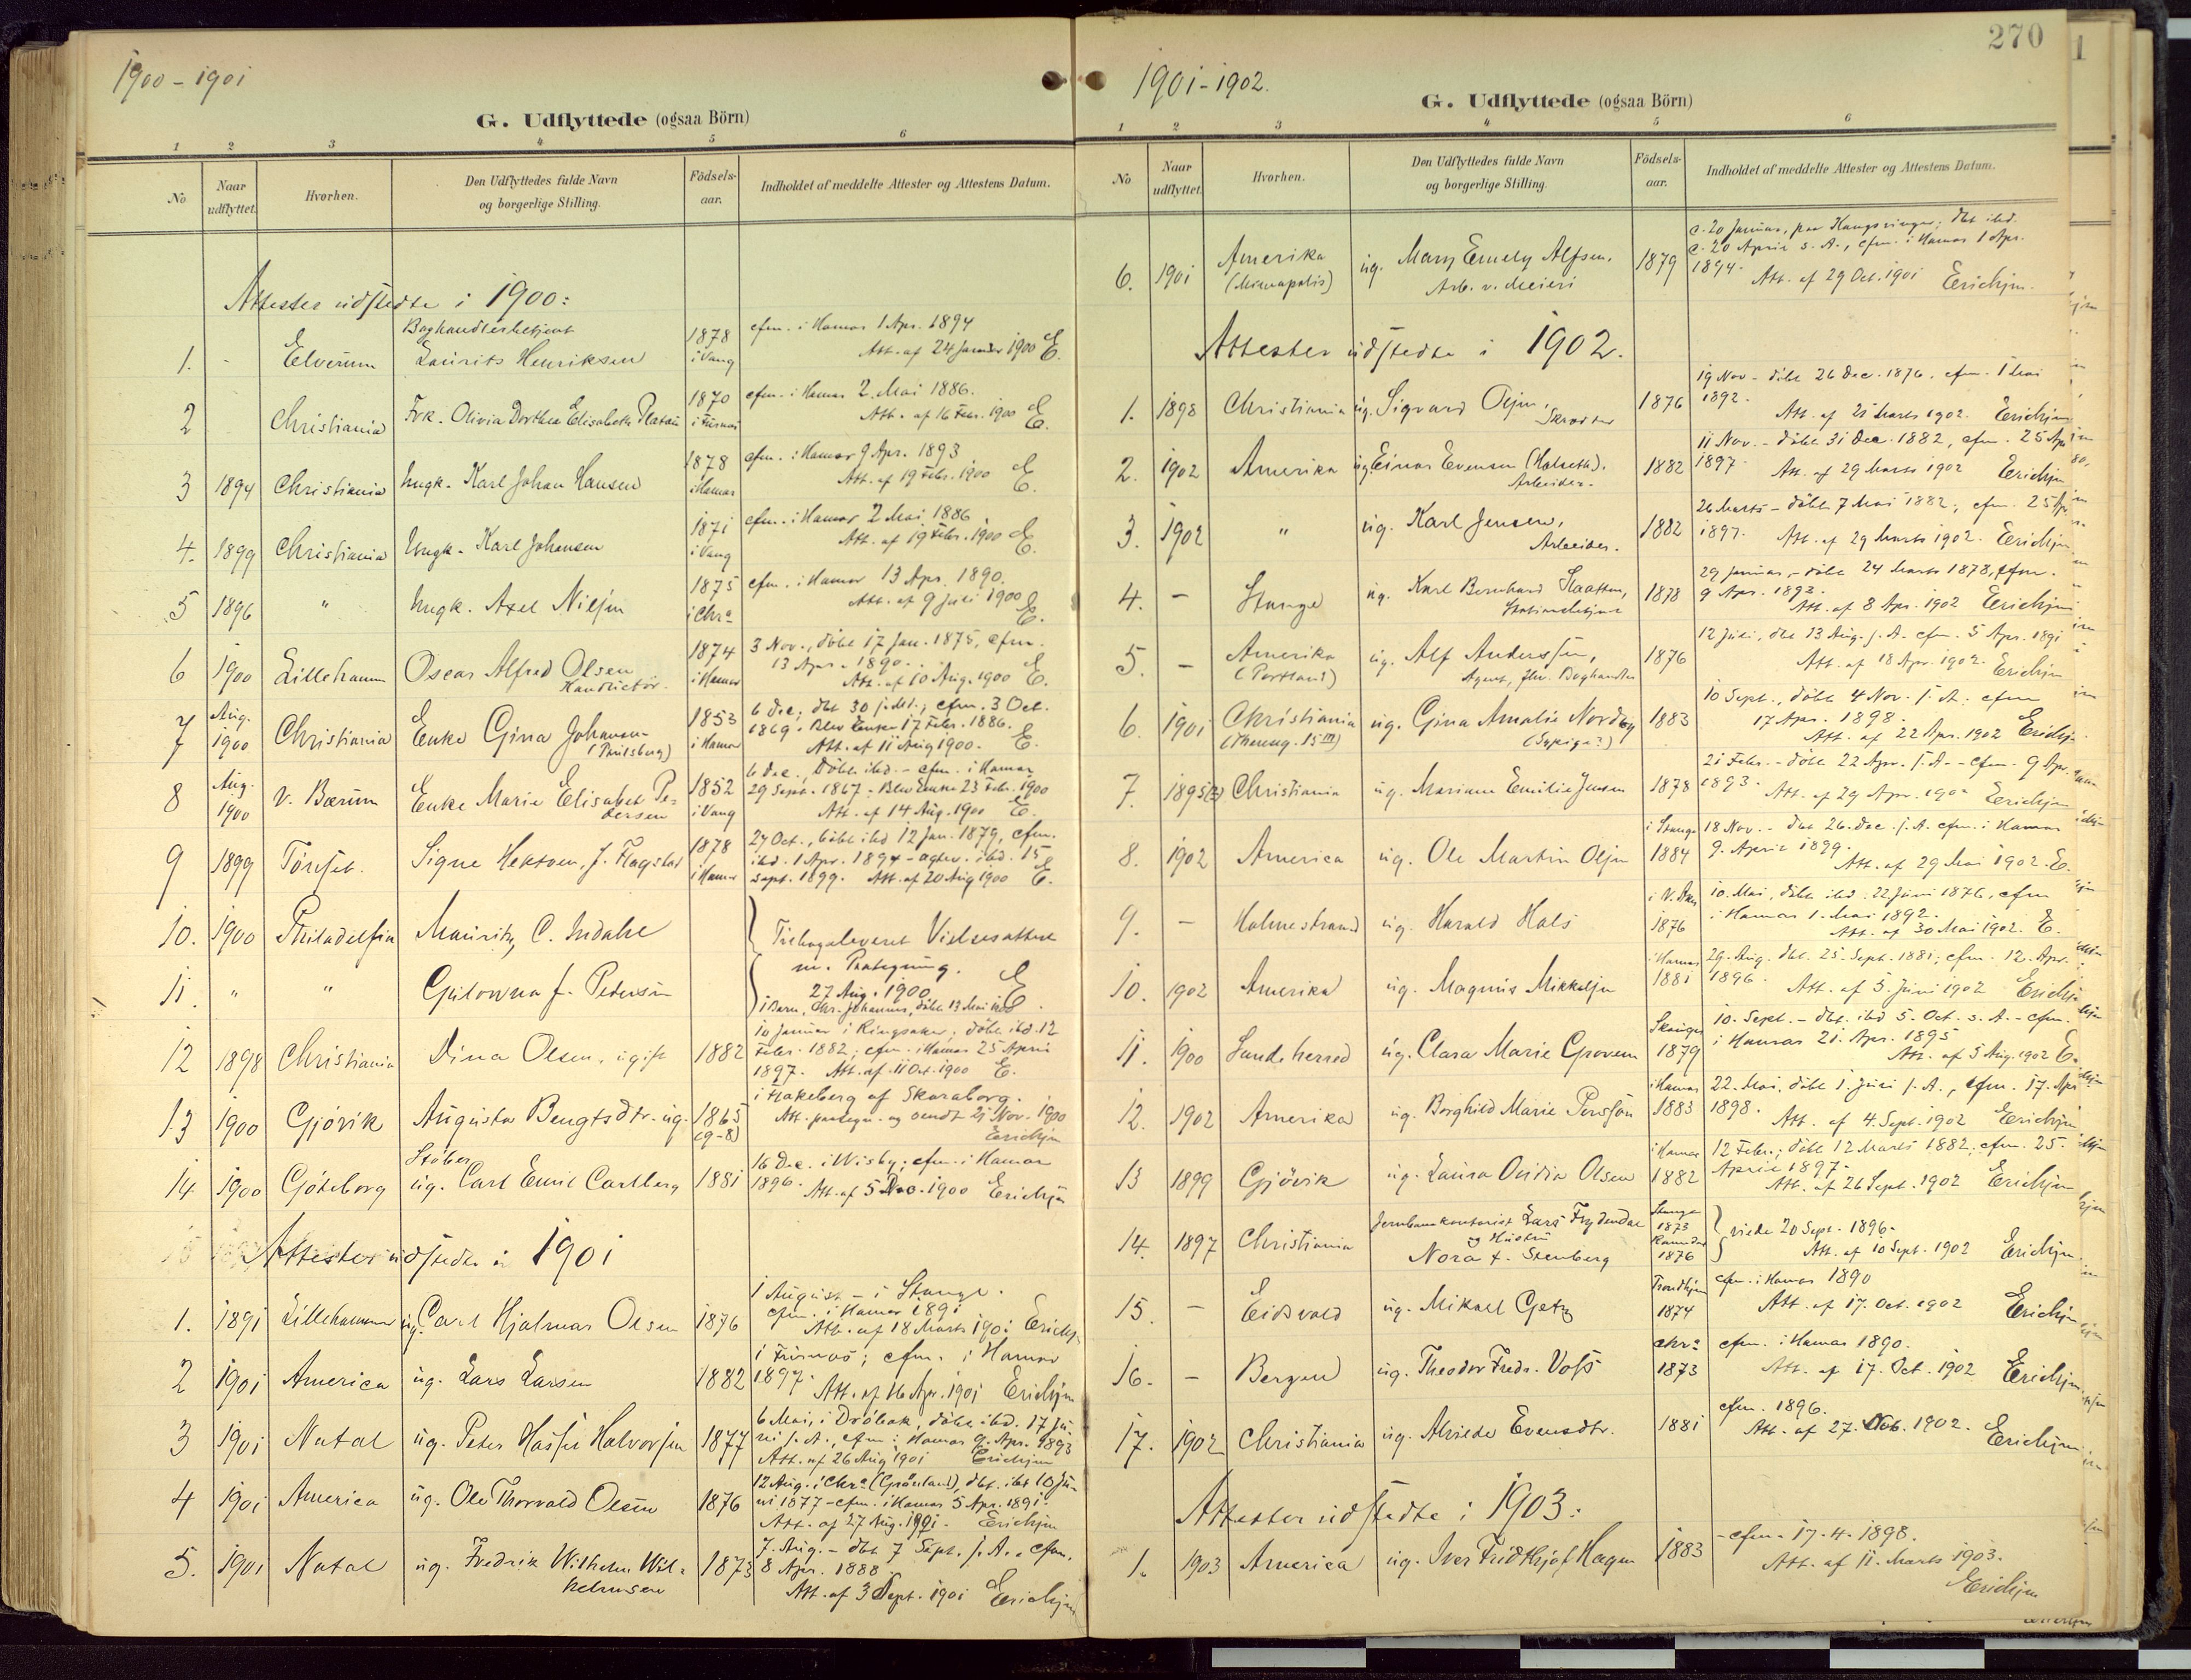 1900 - 1901
G. Udflyttede (ogsaa Börn)
1 2 3 4 5 6
No
Naar udflyttet.
Hvorhen.
Den Udflyttedes fulde Navn og borgerlige Stilling.
Födsels-aar.
Indholdet af meddelte Attester og Attestens Datum.
Attester udstedte i 1900:
Boghandlerbetjent
1. - Elverum Laurits Henriksen 1878 i Vang cfm. i Hamar 1 Apr. 1894
Att. af 24 Januar 1900 E.
2 Christiania Frk. Olivia Dorthea Elisabeth 1870 i Furnæs cfm. i Hamar 2. Mai 1886.
Att. af 16 Febr. 1900 E.
3 1894 Christiania Ungk. Karl Johan Hansen 1878 i Hamar cfm. i Hamar 9 Apr. 1893
Att. af 19 Febr. 1900 E.
4. 1899 Christiania Ungk. Karl Johansen 1871 i Vang cfm. i Hamar 2 Mai 1886
Att. af 19 Febr. 1900 E.
5 1896 " Ungk. Axel Nilsen 1875 i Chra cfm. i Hamar 13 Apr. 1890.
Att. af 9 Juli 1900 E.
6 1900 Lilleham̄er Oscar Alfred Olsen 1874 i Hamar 3 Nov., döbt 17 Jan. 1875, cfm.
13 Apr. 1890.
Att. af 10 Aug. 1900 E.
7 Aug. 1900 Christiania Enke Gina Johansen 1853 i Hamar 6 Dec., dbt 30 s. Md.; cfm. 3 Oct.
1869. Blev Enke 17 Febr. 1886.
Att. af 11 Aug 1900. E.
8 Aug. 1900 V. Bærum Enke Marie Elisabet Pedersen 1852 i Vang 6 Dec., döbt ibd. - cfm. i Hamar
29 Sept. 1867 - Blev Enke 23 Febr. 1900
Att. af 14 Aug. 1900 E.
9 1899 Tönset. Signe Hektoen, f. Flagstad 1878 i Hamar 27 Oct., döbt ibd 12 Jan. 1879, cfm.
ibd. 1 Apr. 1894 - ægtev. ibd. 15
Sept. 1899. Att. af 20 Aug 1900 E.
10. 1900 Philadelfia Mauritz C. Indahl Tilbageleveret Vielsesattest
11. " " f. Pedersen m. Paategning.
27 Aug. 1900 E.
1 Barn, Chr. Johannes, döbt 13 Mai 1900
12 1898 Christiania Dina Olsen, ugift 1882 10 Januar i Ringsaker, döbt ibd. 12
Febr. 1882; cfm. i Hamar 25 April
1897. Att. af 11 Oct. 1900 E.
13 1900 Gjövik Augusta Bengtsdtr. ug. 1865 (9-8) i Flakeberg af Skaraborg.
Att. paategn. og sendt 21 Nov. 1900
Erichsen
Stöber
14 1900 Göteborg ug. Carl Emil Carlberg 1881 16 Dec. i Wisby; cfm. i Hamar
1896. Att. af 5 Dec. 1900 Erichsen
Attester udstedte i 1901
1. 1891 Lillehammer ug. Carl Hjalmar Olsen 1876 1 August - i Stange.
cfm. i Hamar 1891
Att. af 18 Marts 1901 Erichsen
2 1901 America ug. Lars Larsen 1882 i Furnæs; cfm. i Hamar
1897. Att. af 16 Apr. 1901 Erichsen
3 1901 Natal ug. Peter Halvorsen 1877 6 Mai, i Dröbak, döbt ibd. 17 Ju-
ni s. A., cfm i Hamar 9. Apr. 1893
Att. af 26 Aug 1901 Erichsen
4 1901 America ug. Ole Thorvald Olsen 1876 12 Aug. i Chra (Grönland), dbt. ibd 10 Ju-
ni 1877 - cfm. i Hamar 5 Apr. 1891.
Att. af 27 Aug. 1901. Erichsen
5. 1901 Natal ug. Fredrik Wilhelm Wilhelmsen 1873 7. Aug. - dbt 7 Sept. s. A., cfm.
8 Apr. 1888
Att. af 3 Sept. 1901 Erichsen
270
1901 - 1902.
G. Udflyttede (ogsaa Börn)
1 2 3 4 5 6
No
Naar udflyttet.
Hvorhen.
Den Udflyttedes fulde Navn og borgerlige Stilling.
Födsels-aar.
Indholdet af meddelte Attester og Attestens Datum.
6. 1901 Amerika (Minapolis) ug. Mary Emely Alfsen. Arb. v. Meieri 1879 20 Januar, paa Kongsvinger; dbt ibd.
20 April s. A., cfm. i Hamar 1 Apr.
1894. Att. af 29 Oct. 1901 Erichsen.
Attester udstedte i 1902.
1. 1898 Christiania ug. Sigvard Olsen, Skrædder 1876 19 Nov - döbt 26 Dec. 1876. cfm. 1 Mai
1892. Att. af 21 Marts 1902. Erichsen
2. 1902 Amerika ug Einar Evensen (Holseth). Arbeider. 1882 11 Nov. - döbt 31 Dec. 1882, cfm. 25 Apr
1897. Att. af 29 Marts 1902 Erichsen
3. 1902 " ug. Karl Jensen, Arbeider. 1882 26 Marts - döbt 7 Mai 1882, cfm. 25 Apr
1897. Att. af 29 Marts 1902. Erichsen
4. - Stange ug. Karl Bernhard Slaatten, Stationsbetjent 1878 29 Januar, - döbt 24 Marts 1878, cfm.
9 Apr. 1893. Att. af 8 Apr. 1902 Erichsen
5. - Amerika (Portland) ug. Alf Anderssen, Agent, fhv. Boghandler 1876 12 Juli, dbt 13 Aug. s. A. cfm. 5 Apr. 1891
Att. af 18 Apr. 1902. Erichsen
6. 1901 Christiania ug. Gina Amalie Nordby (Sypige?) 1883 10 Sept., döbt 4 Nov. s. A. cfm
17 Apr. 1898.
Att. af 22 Apr. 1902 Erichsen
7. 1895(?) Christiania ug. Mariane Emilie Jensen 1878 21 Febr. - döbt 22 Apr. s. A. - cfm. 9 Apr.
1893. Att. af 29 Apr. 1902 Erichsen
8. 1902 America ug. Ole Martin Olsen i Stange 1884 18 Nov. - dbt 26. Dec. s. A. cfm. i Hamar
9. April 1899. Att. af 29 Mai 1902. E.
9. - Holmestrand ug. Harald Hals 1876 10. Mai, döbt ibd. 22 Juni 1876, cfm
i Hamar 1. Mai 1892.
Att. af 30 Mai 1902. E.
10. 1902 Amerika ug. Magnus Mikkelsen i Hamar 1881 29. Aug. dbt. 25. Sept. 1881; cfm. 12. Apr.
1896. Att. af 3. Juni 1902 Erichsen
11. 1900 Sandeherred ug. Clara Marie Groven 1879 10. Sept. - dbt. ibd 5. Oct. s. A. - cfm.
i Hamar 21. Apr. 1895
Att. af 5 Aug. 1902 E.
12. 1902 Amerika ug. Borghild Marie Persson i Hamar 1883 22. Mai, döbt 1. Juli s. A., cfm. 17. Apr
1898. Att. af 4. Sept. 1902 Erichsen
13 1899 Gjövik ug. Laura Ovidia Olsen i Hamar 1882 12 Febr.; döbt 12 Marts 1882, cfm. 25.
April 1897.
Att. af 26 Sept. 1902 Erichsen
14. 1897 Christiania Jernbanekontorist Lars Frydendal og Hustru Nora f. Stenberg Stange 1873 1876 viede 20 Sept. 1896.
Att. af 10 Sept. 1902 Erichsen.
15. - Eidsvold ug. Mikael Getz Trondhjem 1874 cfm. i Hamar 1890
Att. af 17. Oct. 1902 Erichsen
16. - Bergen ug. Theodor Fredr. Voss Chra 1873 cfm. i Hamar 1890.
Att. af 17. Oct. 1902 Erichsen.
17. 1902 Christiania ug. Evensdtr. 1881 cfm. 1896.
Att. af 27. 1902. Erichsen
Attester udstedte i 1903:
1. 1903 America ug. Iver Fridthjof Hagen 1883 - cfm. 17-4-1898.
Att. af 11. Marts 1903.
Erichsen